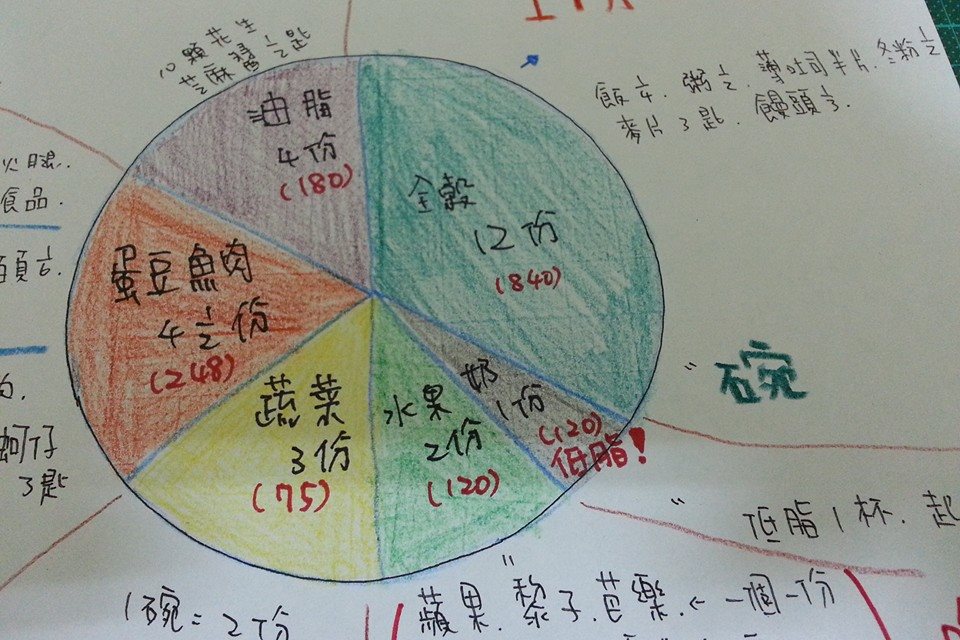 10顆花生
芝麻醬½匙
飯¼、粥½、薄吐司半片、冬粉½
麥片3匙、饅頭⅓.
油脂
4份
(180)
全穀
12份
(840)
食品.
蛋豆魚肉
4½份
(248)
蚵仔
3匙
蔬菜
3份
(75)
水果
2份
(120)
奶
1份
(120)
低脂!
"碗
"低脂1杯、起
1碗=2份
"蘋果、黎子、芭樂、←一個一份